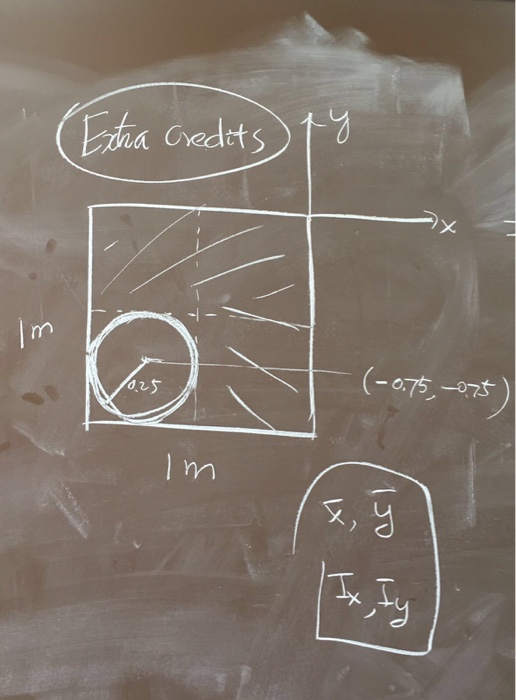 Extra Credits
y
x
1m
0.25
(-0.75, -0.75)
1m
x̄, ȳ
Īx, Īy